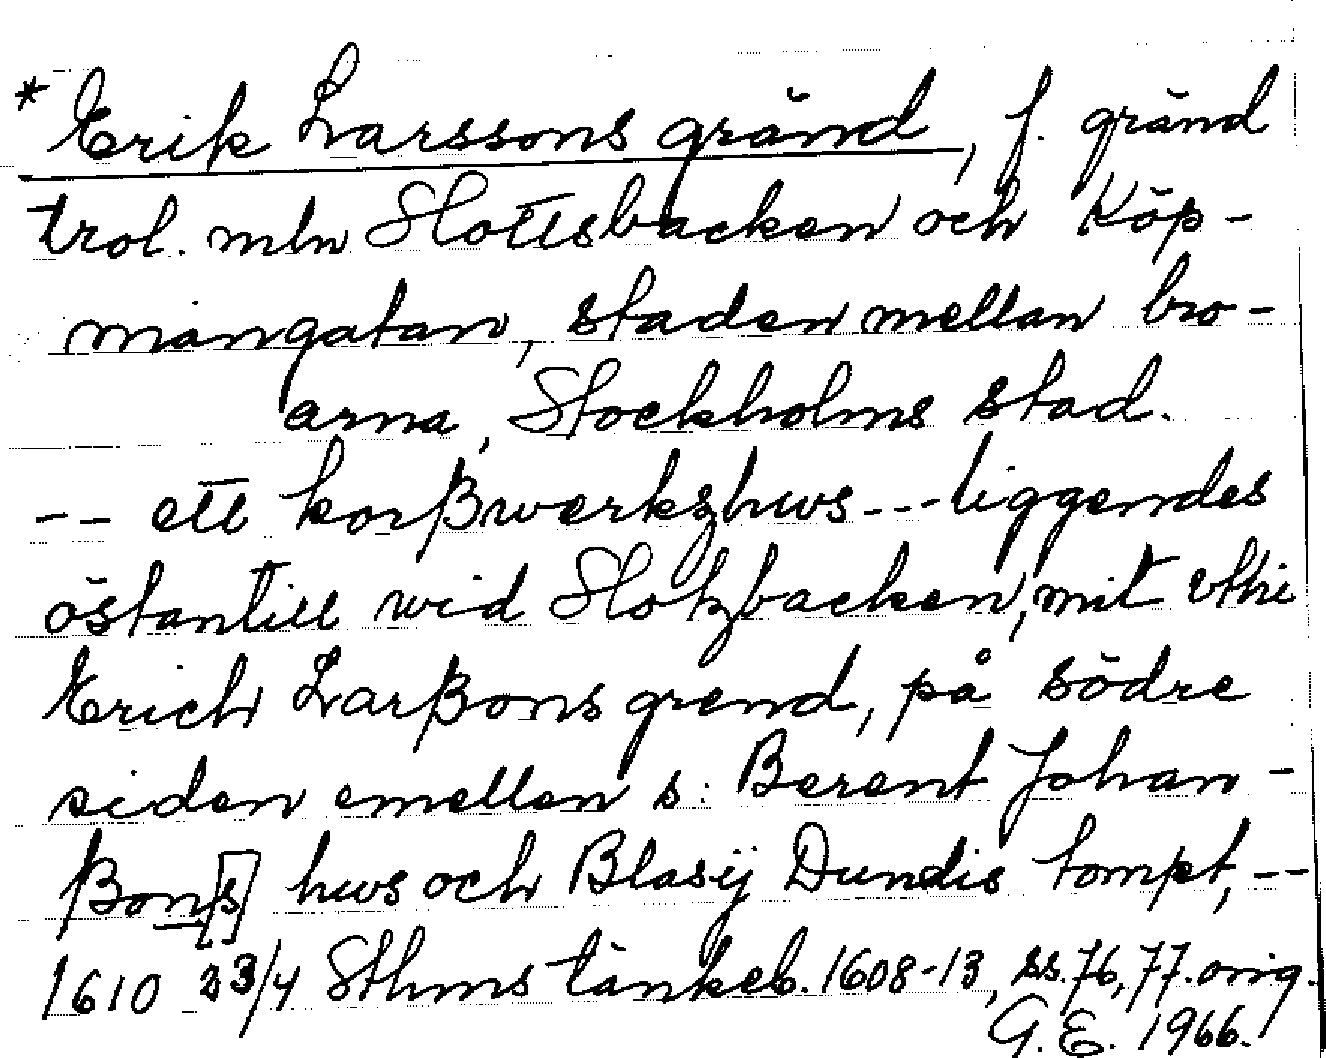 * Erik Larssons gränd, f. gränd
trol. mln Slottsbacken och Köp-
mangatan, staden mellan bro-
arna, Stockholms stad.
-- ett korßwerkzhws --- liggendes
östantill wid Slotzbacken, mit vthi
Erich Larßons grend, på södre
siden emellen s: Berent Johan-
ßon[s] hws och Blasij Dundis tompt, --
1610 23/4 Sthms tänkeb. 1608-13, ss. 76, 77. orig.
G.E. 1966.